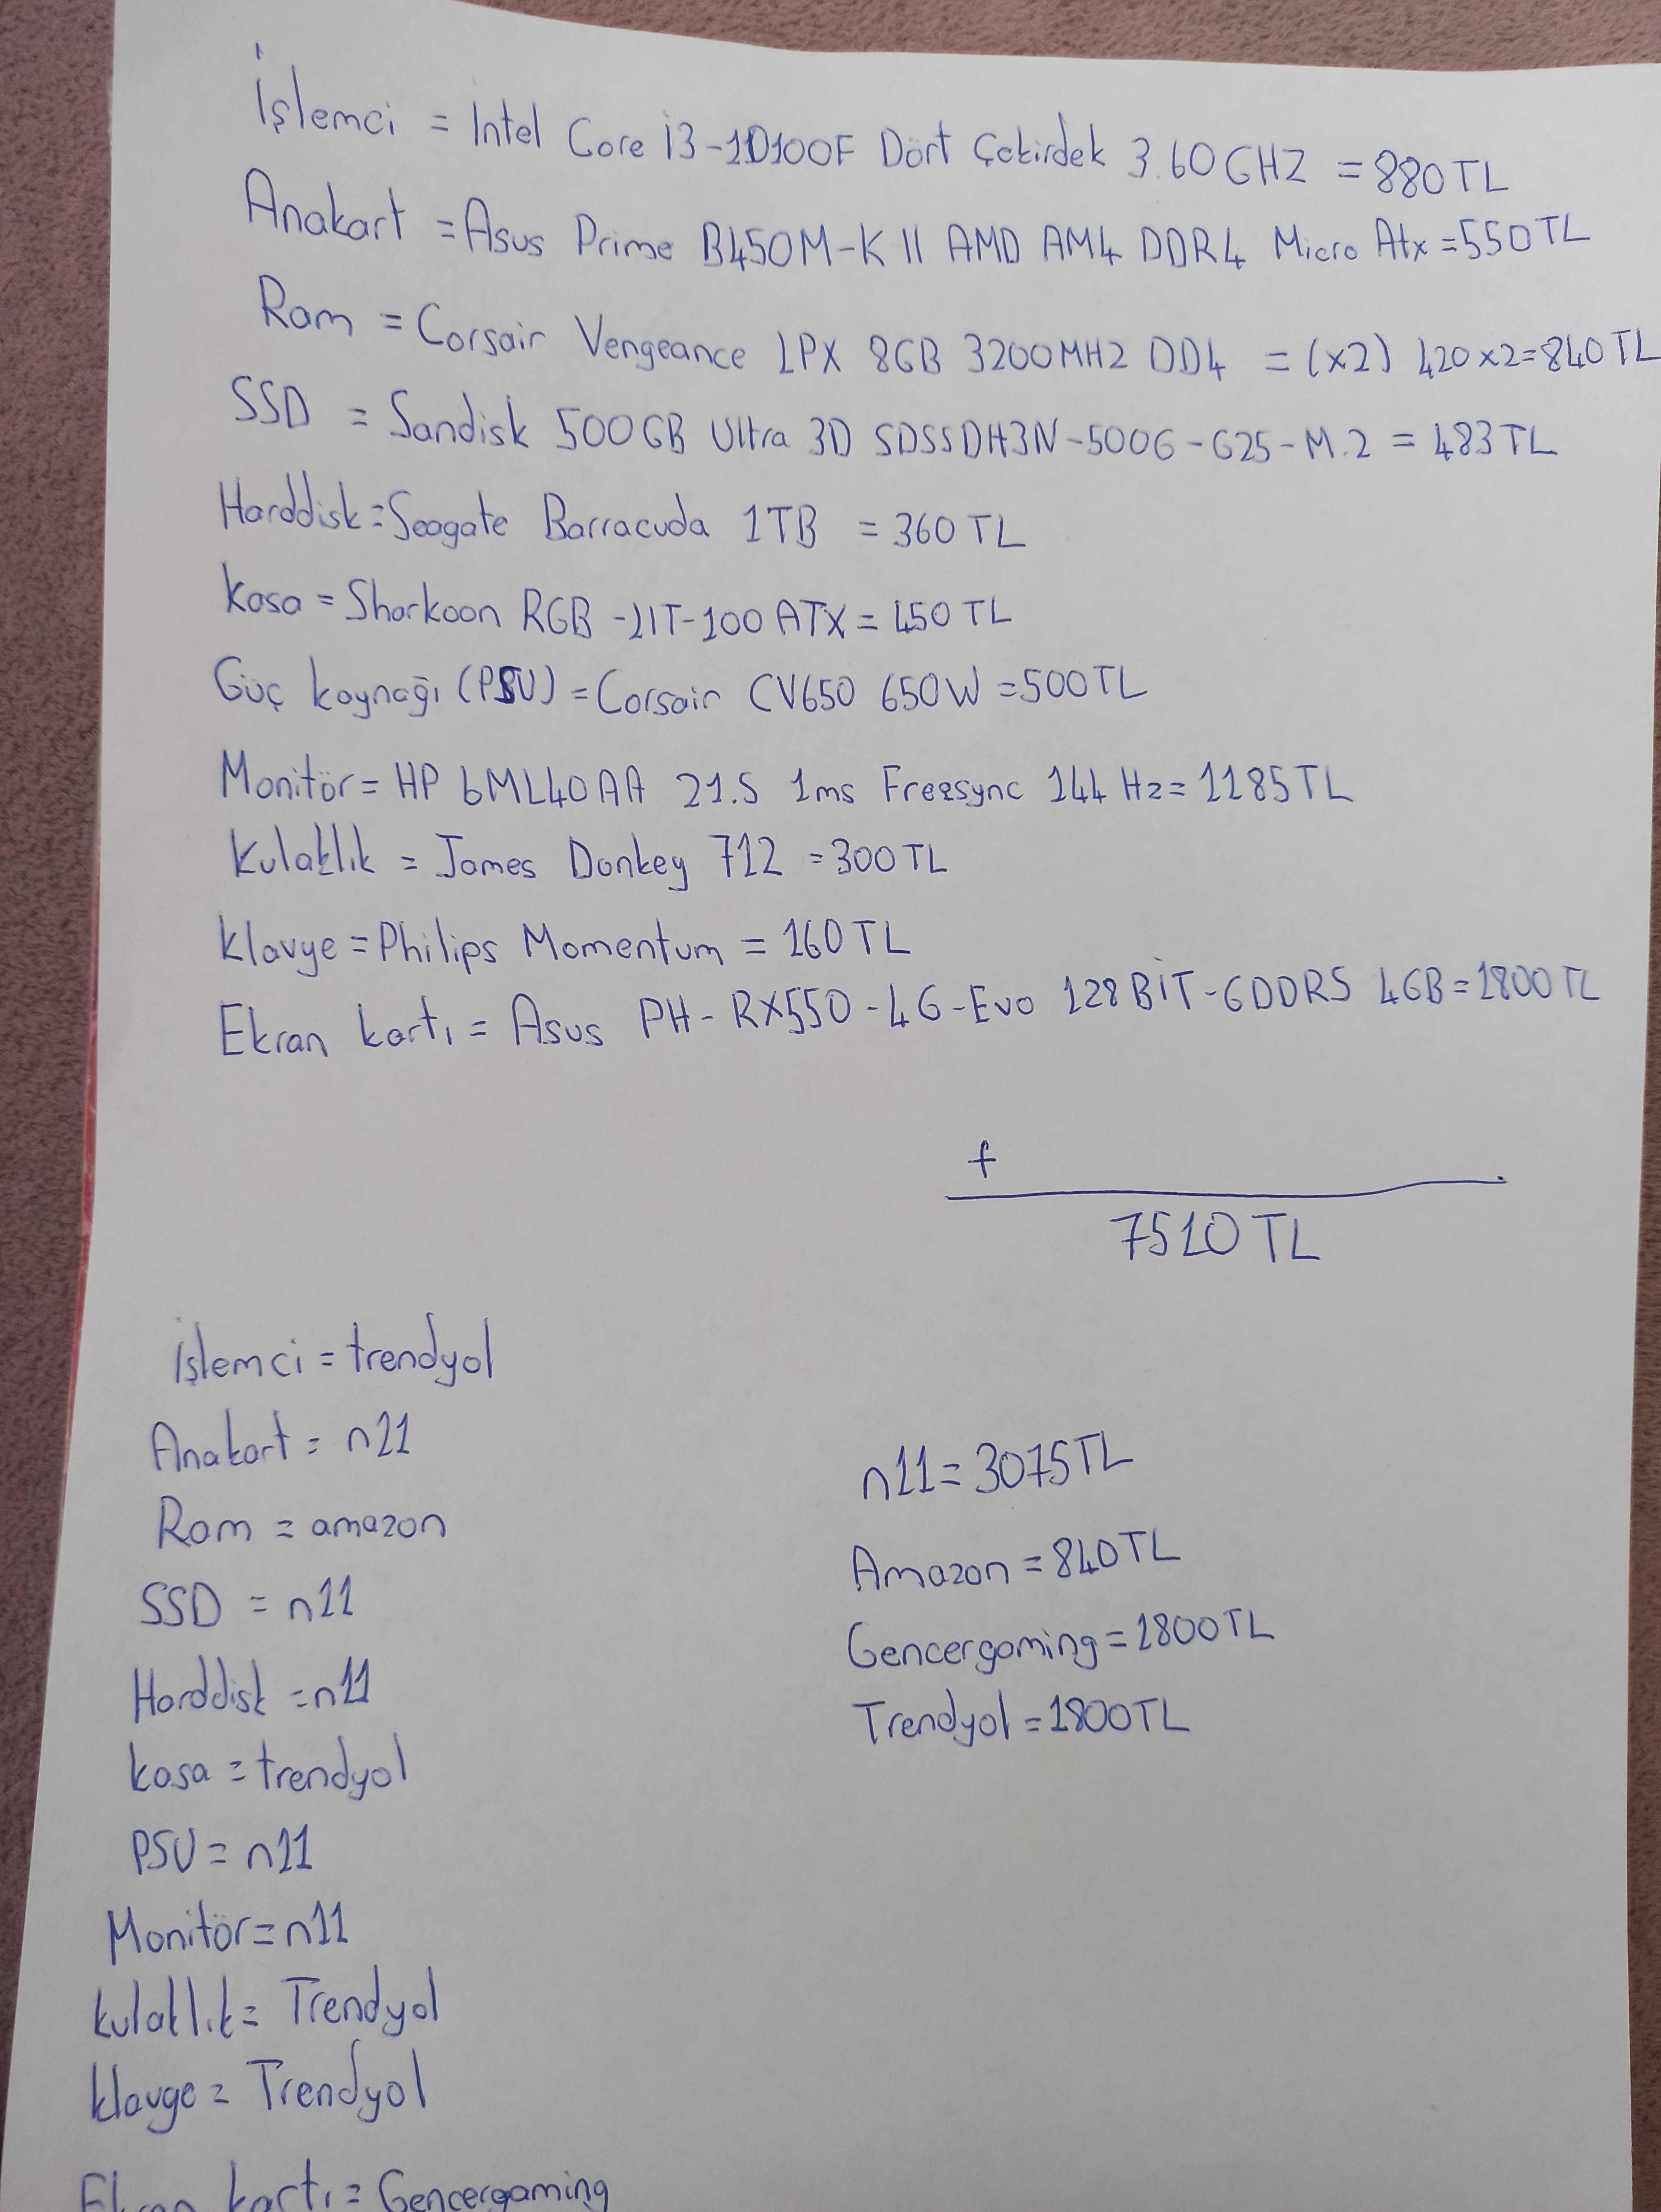 İşlemci = Intel Core İ3-10100F Dört Çekirdek 3.60GHZ = 880TL
Anakart = Asus Prime B450M-K II AMD AM4 DDR4 Micro Atx = 550TL
Ram = Corsair Vengeance LPX 8GB 3200MHZ DD4 = (x2) 420x2=840TL
SSD = Sandisk 500GB Ultra 3D SDSSDH3N-500G-G25-M.2 = 483TL
Harddisk=Seagate Barracuda 1TB = 360TL
Kasa = Sharkoon RGB-LIT-100 ATX = 450TL
Güç kaynağı (PSU) = Corsair CV650 650W =500TL
Monitör= HP 6ML40AA 21.5 1ms Freesync 144Hz= 1185TL
Kulaklık = James Donkey 712 =300TL
Klavye =Philips Momentum = 160TL
Ekran kartı = Asus PH-RX550-4G-Evo 128BİT-GDDR5 4GB=1800TL
+
7510TL
İşlemci = trendyol
Anakart = n11
n11=3075TL
Ram = amazon
Amazon=840TL
SSD = n11
Gencergaming=1800TL
Harddisk =n11
Trendyol=1800TL
kasa =trendyol
PSU= n11
Monitör=n11
kulaklık= Trendyol
klavye= Trendyol
Ekran kartı= Gencergaming